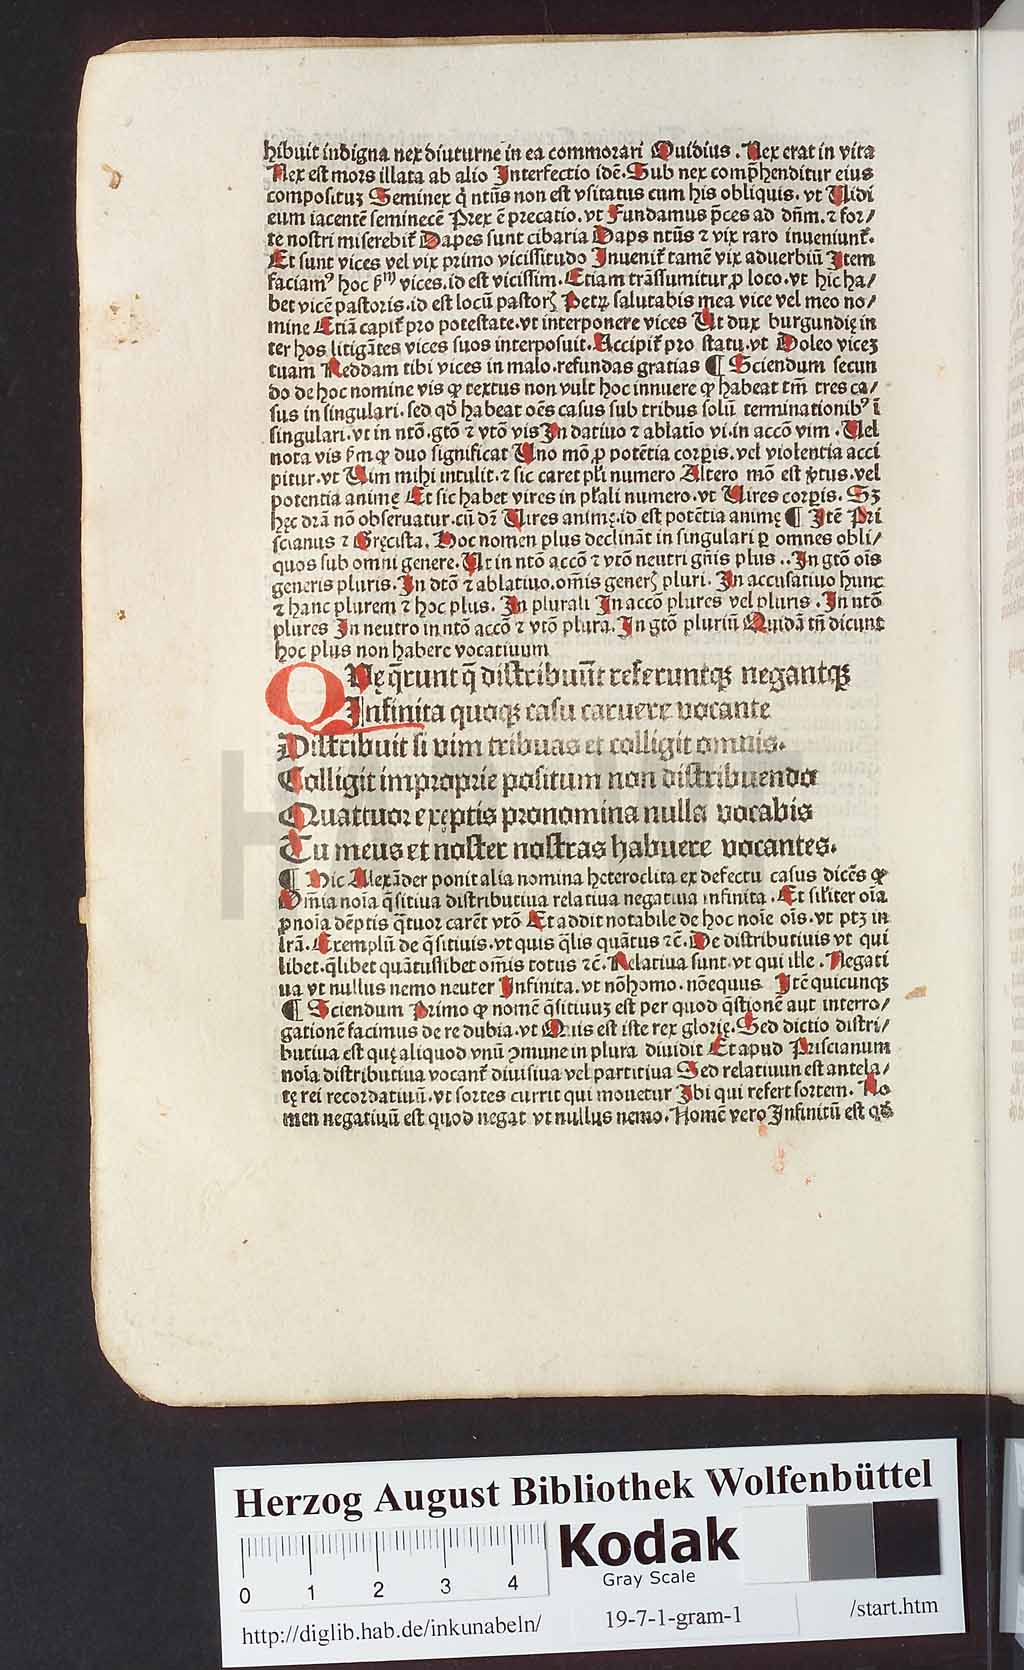 hibuit indigna nex diuturne in ea commorari Ouidius . Nex erat in vita
Nex est mors illata ab alio Interfectio idē. Sub nex comp̄henditur eius
composituꝫ Seminex q̇ ntūs non est vsitatus cum his obliquis. vt Uidi
eum iacentē seminecē Prex ē precatio. vt Fundamus p̄ces ad dn̄m. ⁊ for/
te nostri miserebit᷑ Dapes sunt cibaria Daps ntūs ⁊ vix raro inueniunt᷑.
Et sunt vices vel vix primo vicissitudo Inuenit᷑ tamē vix aduerbiū Item
faciamꝰ hoc vices. id est vicissim. Etiam trāssumitur ꝓ loco. vt hic ha/
bet vicē pastoris. id est locū pastorꝭ Petꝝ salutabis mea vice vel meo no/
mine Etiā capit᷑ pro potestate. vt interponere vices Ut dux burgundię in
ter hos litigātes vices suos interposuit. Accipit᷑ pro statu. vt Doleo viceꝫ
tuam Reddam tibi vices in malo. refundas gratias ¶ Sciendum secun
do de hoc nomine vis ꝙ textus non vult hoc innuere ꝙ habeat tm̄ tres ca/
sus in singulari. sed qđ habeat oēs casus sub tribus solū terminationibꝰ ī
singulari. vt in ntō. gtō ⁊ vtō vis In datiuo ⁊ ablatīo vi. in accō vim . Uel
nota vis ꝙ duo significat Uno mō ꝓ potētia corpis. vel violentia acci
pitur. vt Uim mihi intulit. ⁊ sic caret pli numero Altero mō est vel
potentia animę Et sic habet vires in płrali numero. vt Uires corpis. Sꝫ
hęc dr̄ā nō obseruatur. cū dꝫ Uires animę. id est potētia animę ¶ Itē Pri
scianus ⁊ Gręcista. Hoc nomen plus declināt in singulari ꝑ omnes obli/
quos sub omni genere. Ut in ntō accō ⁊ vtō neutri gn̄is plus .. In gtō oīs
generis pluris. In dtō ⁊ ablatiuo. om̄is generꝭ pluri. In accusatiuo hunc
⁊ hanc plurem ⁊ hoc plus. In plurali In accō plures vel pluris . In ntō
plures In neutro in ntō accō ⁊ vtō plura. In gtō pluriū Quidā tn̄ dicunt
hoc plus non habere vocatiuum
QUę q̄runt q̄ distribuūt referuntqꝫ negantqꝫ
Infinita quoqꝫ casu caruere vocante
Distribuit si vim tribuas et colligit omnis.
Colligit improprie positum non distribuendo
Quattuor exęptis pronomina nulla vocabis
Tu meus et noster nostras habuere vocantes.
¶ Hic Alexāder ponit alia nomina hęteroclita ex defectu casus dicēs ꝙ
Om̄ia noīa q̄sitiua distributiua relatiua negatiua infinita . Et sil̄iter oīa
ꝓnoīa dēptis q̄tuor carēt vtō Et addit notabile de hoc noīe oīs. vt ptꝫ in
lr̄ā. Exemplū de q̄sitiuis. vt quis q̄lis quātus ⁊c̄. De distributiuis vt qui
libet. q̄libet quātuslibet om̄is totus ⁊c̄. Relatiua sunt. vt qui ille . Negati
ua vt nullus nemo neuter Infinita. vt nōhomo. nōequus Itē quicunqꝫ
¶ Sciendum Primo ꝙ nomē q̄sitiuuꝫ est per quod q̄stionē aut interro/
gationē facimus de re dubia. vt Quis est iste rex glorię. Sed dictio distri/
butiua est quę aliquod vnū ꝯmune in plura diuidit Et apud Priscianum
noīa distributiua vocant᷑ diuisiua vel partitiua Sed relatiuun est antela/
tę rei recordatiuū. vt sortes currit qui mouetur Ibi qui refert sortem. No
men negatiuū est quod negat vt nullus nemo. Nomē vero Infinitū est qđ
HAB
Herzog August Bibliothek Wolfenbüttel
0 1 2 3 4
Kodak
Gray Scale
http://diglib.hab.de/inkunabeln/
19-7-1-gram-1
/start.htm